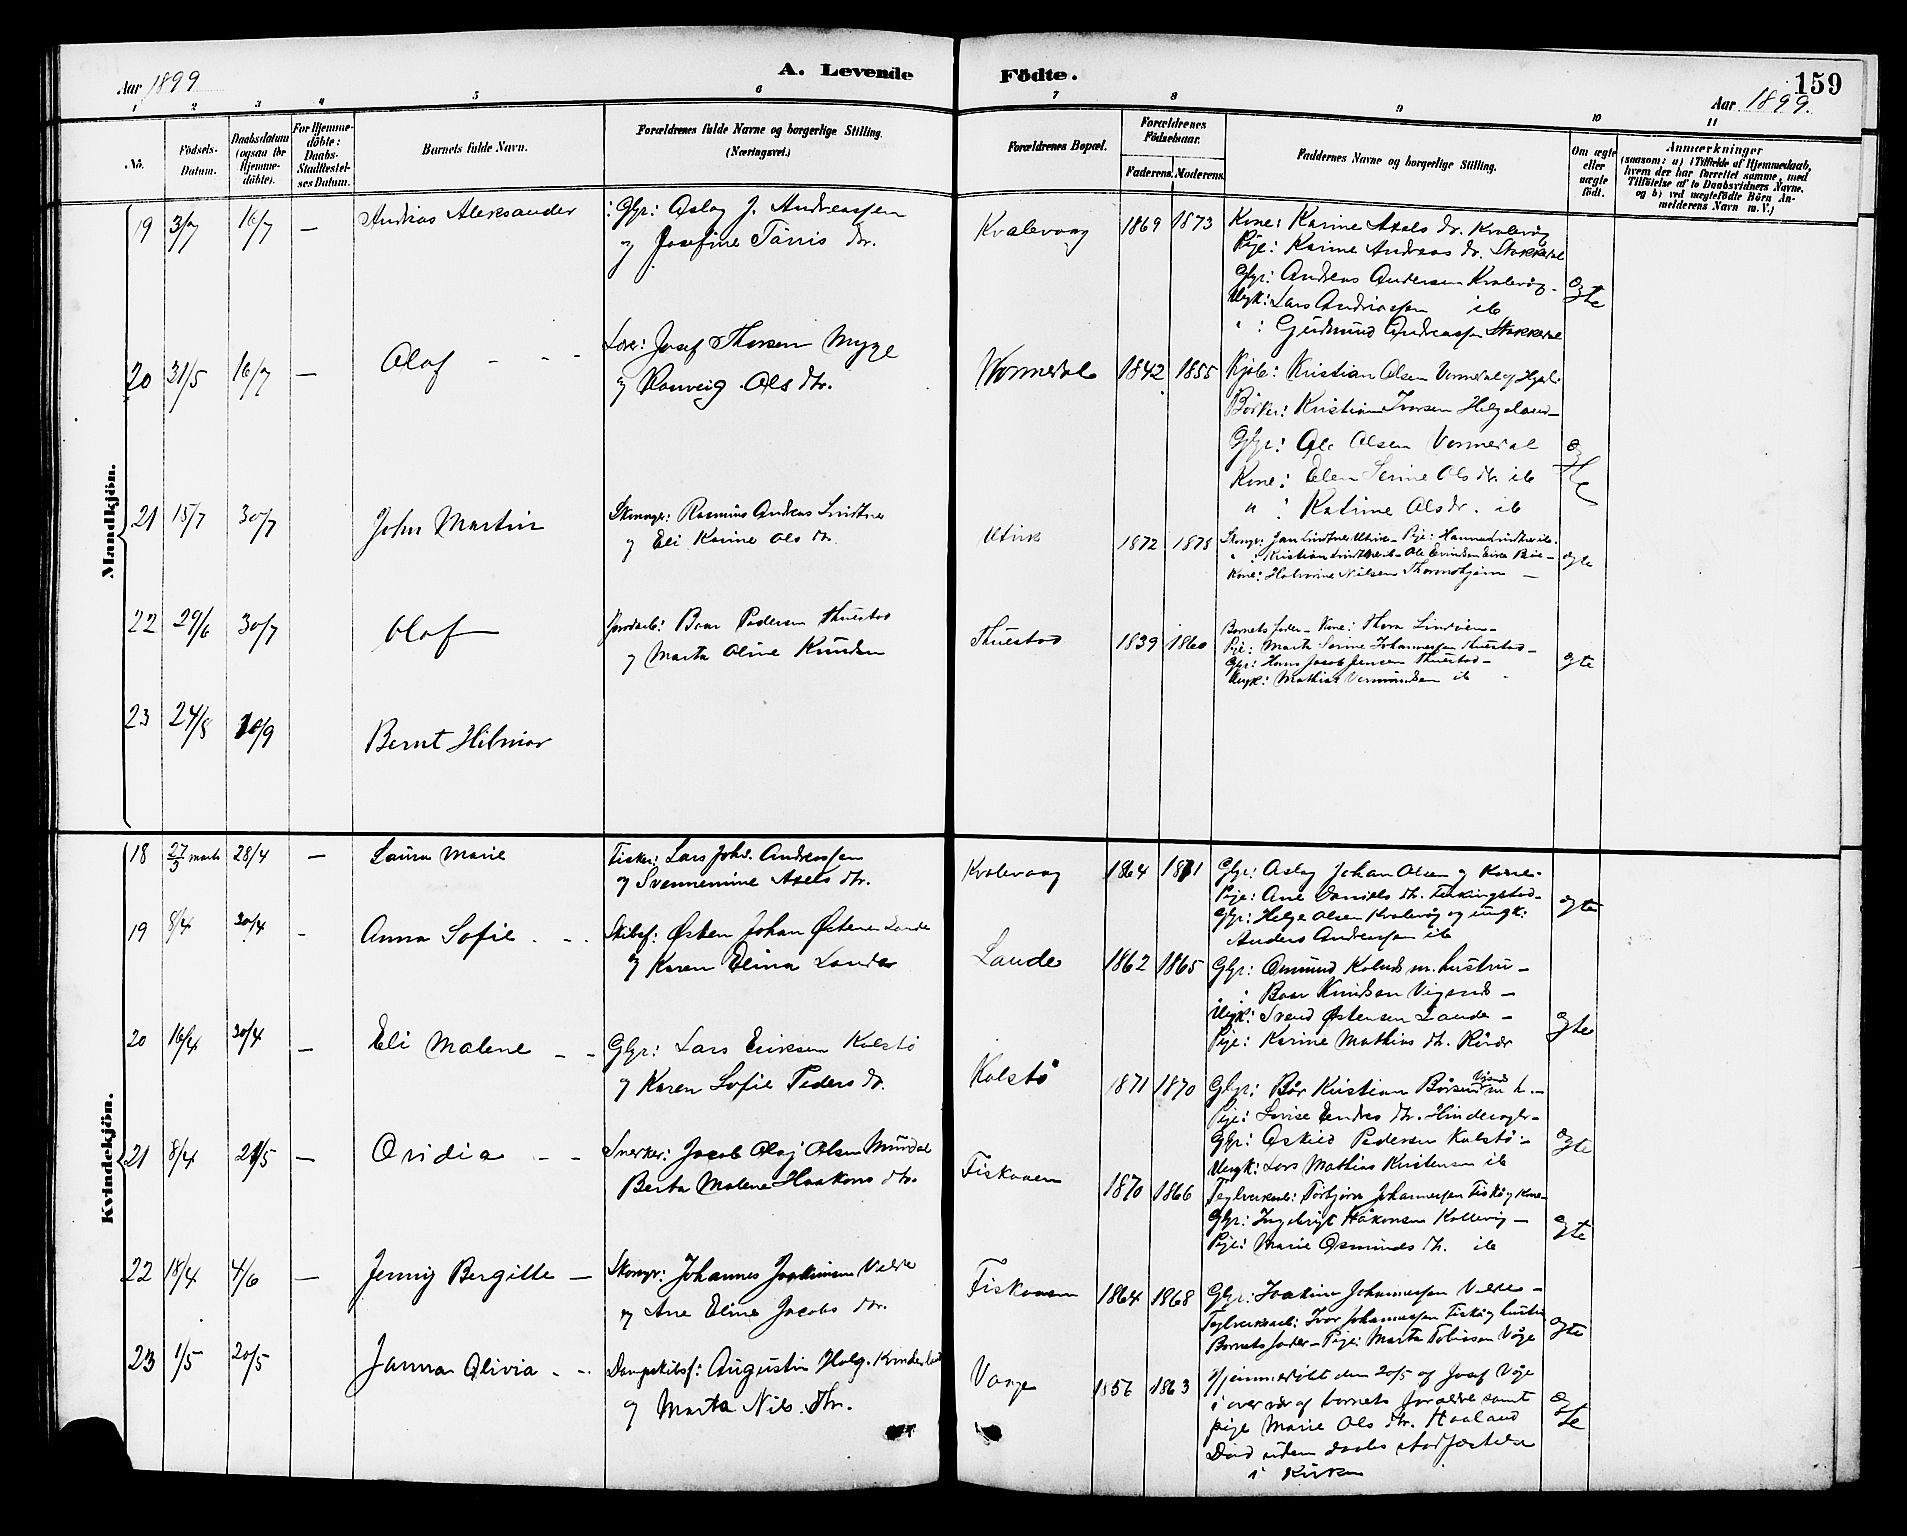 Aar 1899
A. Levende
Födte.
159
Aar 1899.
1 2 3 4 5 6 7 8 9 10 11
No.
Födsels-
Datum.
Daabsdatum
(ogsaa for
Hjemme-
döbte).
For Hjemme-
döbte:
Daabs-
Stadfæstel-
ses Datum.
Barnets fulde Navn.
Forældrenes fulde Navne og borgerlige Stilling.
(Næringsvei.)
Forældrenes Bopæl.
Forældrenes
Födselsaar.
Faderens. Moderens.
Faddernes Navne og borgerlige Stilling.
Om ægte
eller
uægte
födt.
Anmærkninger
(saasom: a) i Tilfælde af Hjemmedaab,
hvem der har forrettet samme, med
Tilföielse af to Daabsvidners Navne.
og b) ved uægtefödte Börn An-
melderens Navn m. V.)
Mandkjön.
19 3/7 16/7 — Andreas Aleksander
Gbr: Aslag J. Andreassen
og Josefine Tönis dr.
Kvalevaag 1869 1873
Kone: Karine Axels dr. Kvalevåg
Pije: Karine Andreas dr. Stokkedal
Gbr: Andreas Andersen Kvalevåg -
Ungk: Lars Andreassen ib
" : Gudmund Andreassen Stokkedal
ægte
20 31/5 16/7 — Olaf - - -
Løse: Josef Thorsen Myge
og Ranveig Ols dtr.
Vormedal 1842 1855
Kjøb: Kristian Olsen Vormedal og Hgsb.
Bödker: Kristian Ivarsen Helgeland -
Gbr: Ole Olsen Vormedal
Kone: Elen Serine Ols dr. ib
" : Katrine Olsdr. ib
ægte
21 15/7 30/7 John Martin
Skomager: Rasmus Andreas Lindtner
og Eli Karine Ols dr.
Utvik 1872 1878
Kone: Halvorine Nilsen
ægte
22 29/6 30/7 Olof
Baar Pedersen Thuestad
og Marta Oline Knudsen
Thuestad 1839 1860
Barnets fader - Kone: Thora
Pije: Marta Serine Johannessen Thuestad -
Gbr: Hans Jacob Jensen Thuestad -
Ungk: Mathias Vermundsen ib
ægte
23 24/8 10/9 Bernt Hilmar
Kvindekjön.
18 27/3 marts 28/4 — Laura Marie
Fisker: Lars Johs. Andreassen
og Svennemine Axels dtr.
Kvalevaag 1864 1871
Gbr: Aslag Johan Olsen og Kone -
Pije: Ane Daniels dr. Ferkingstad -
Gbr: Helge Olsen Kvalevåg og ungk:
Anders Andreassen ib
ægte
19 8/4 30/4 - Anna Sofie - -
Skibsf: Østen Johan Østensen Lande
og Karen Elina Lande
Lande 1862 1865
Gbr: Osmund Kolnes m. hustru -
" : Baar Knudsen Vigsnes -
Ungk: Svend Østensen Lande -
Pije: Karine Mathias dr.
ægte
20 16/4 30/4 — Eli Malene - -
Gbr: Lars Eriksen Kolstö
og Karen Sofie Peders dr.
Kolstö 1871 1870
Gbr: Bår Kristian Börsen m h. -
Pije: Lovise Endres dr. Hindervåg -
Gbr: Oskild Pedersen Kolstö -
Ungk: Lars Mathias Kristensen ib
ægte
21 8/4 21/5 — Ovidia - -
Snerker: Jacob Olaj Olsen Mundal
Berta Malene Haakons dtr.
Fiskaaen 1870 1866
Teglverksarb: Torbjörn Johannessen Fiskå og Kone
Gbr: Ingebrigt Håkonsen Kallevig -
Pije: Marie Osmunds dr. ib
ægte
22 18/4 4/6 — Jenny Bergitte —
Skomgr: Johannes Joakimsen Velde
og Ane Eline Jacobs dtr.
Fiskaaen 1864 1868
Gbr: Joakim Johannessen Velde -
Teglverksarb: Ivar Johannessen Fiskå og hustru
Barnets fader - Pije: Marta Tobiasen Våge
ægte
23 1/5 20/5 Janna Olivia - -
Dampskibsf: Augustin Holg.
og Marta Nils dtr.
Vaage 1857 1863
Hjemmedöbt den 20/5 af Josef Våge
i overvær af barnets forældre samt
pige Marie Ols dtr. Haaland
Död uden daabs stadfæstelse
i Kirken
ægte